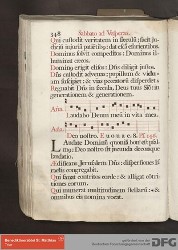 348 Sabbato ad Vesperas.
Qui custodit veritatem in sæculũ; facit ju-
dicium injuriã patientib9; dat escã esurientibus.
Dominus solvit compeditos: Dominus il-
luminat cæcos.
Dominus erigit elisos: Dñs diligit justos.
Dñs custodit advenas; pupillum & vidu-
am suscipiet: & vias peccatorũ disperdet.
Regnabit Dñs in sæcula, Deus tuus Sion: in
generationem & generationem.
Laudabo Deum meum in vita mea.
Deo nostro. E u o u a e.
Laudate Dominũ quoniã bon9 est psal-
mus: Deo nostro sit jucunda decoraque
laudatio.
Ædificans Jerusalem Dñs: dispersiones Is-
raelis congregabit.
Qui sanat contritos corde: & alligat con-
tritiones eorum.
Qui numerat multitudinem stellarũ: & 
omnibus eis nomina vocat.
DFG